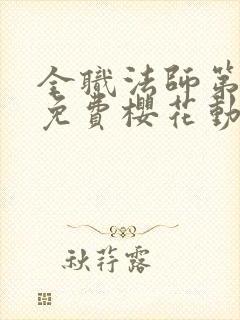 全職法師第
免費櫻花動
秋荇露